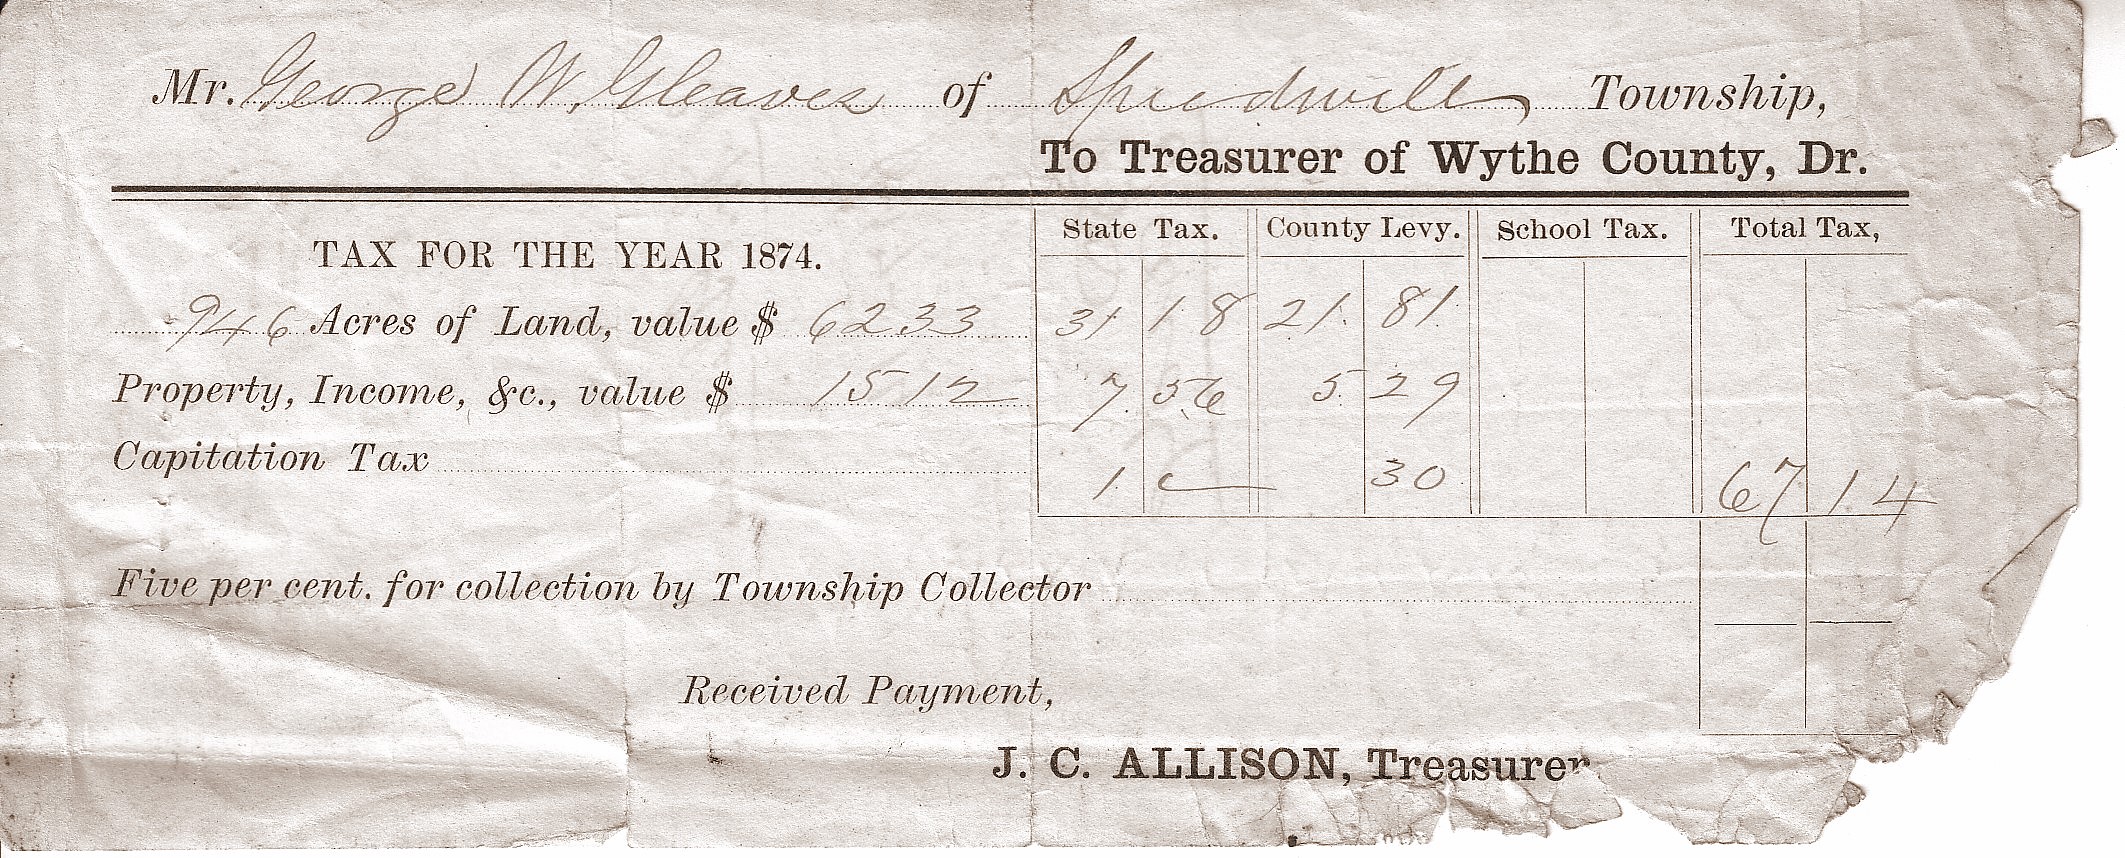 Mr. George W. Gleaves of Speedwell Township,
To Treasurer of Wythe County, Dr.
State Tax. County Levy. School Tax. Total Tax,
TAX FOR THE YEAR 1874.
946 Acres of Land, value $ 6233 31 18 21. 81.
Property, Income, &c., value $ 1512 7. 56 5. 29
Capitation Tax 1. — 30 67 14
Five per cent. for collection by Township Collector
Received Payment,
J. C. ALLISON, Treasurer